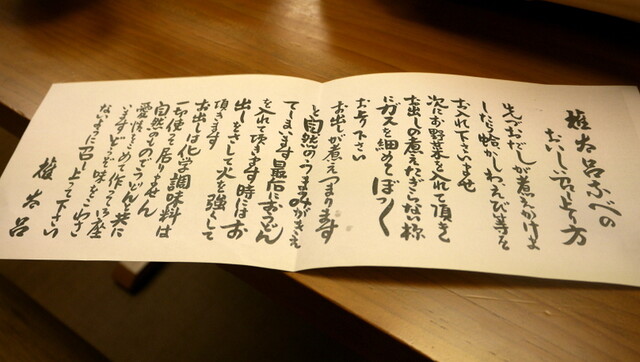 権太呂なべの
おいしい召上り方
先づおだしが煮えかけま
したら蛤かしわえび等を
お入れ下さいませ
次にお野菜を入れて頂き
お出しの煮えたぎらない様
にガスを細めてぼつ〱
お召り下さい
お出しが煮えつまります
と自然のうまみがきえ
てしまいます最后におうどん
を入れて頂きます時にはお
出しをさして火を強くして
頂きます
お出しは化学調味料は
一切使って居りません
自然のものでうどんと共に
愛情をこめて作って御座
いますどうぞ味をこわさ
ないように召上って下さい
権太呂